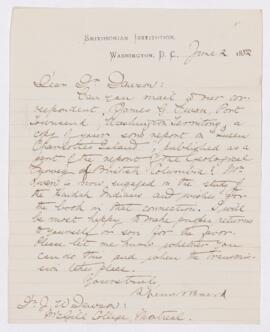 SMITHSONIAN INSTITUTION,
WASHINGTON, D. C. June 2 1882
Dear Dr Dawson:
Can you mail to our cor-
respondent, James G. Swan, Port
Townsend, Washington Territory, a
copy of your son's report on Queen
Charlotte's Island, published as a
part of the report of the Geological
Survey of British Columbia? Mr
Swan is now engaged in the study of
the Haidah Indians and wishes
the book in that connection. I will
be most happy to make any returns
to yourself or son for the favor.
Please let me know whether you
can do this and when the transmis-
sion takes place.
Yours truly,
Spencer F Baird
Dr J. W Dawson:
McGill College, Montreal.